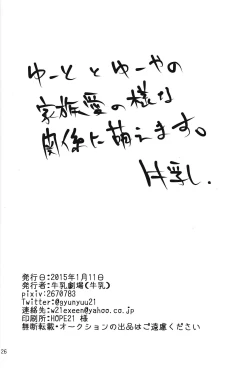 ゆーととゆーやの
家族愛の様な
関係に萌えます。
牛乳.
発行日:2015年1月11日
発行者:牛乳劇場(牛乳)
pixiv:2670783
Twitter:@gyunyuu21
連絡先:w21exeen@yahoo.co.jp
印刷所:HOPE21 様
無断転載・オークションの出品はご遠慮ください
26